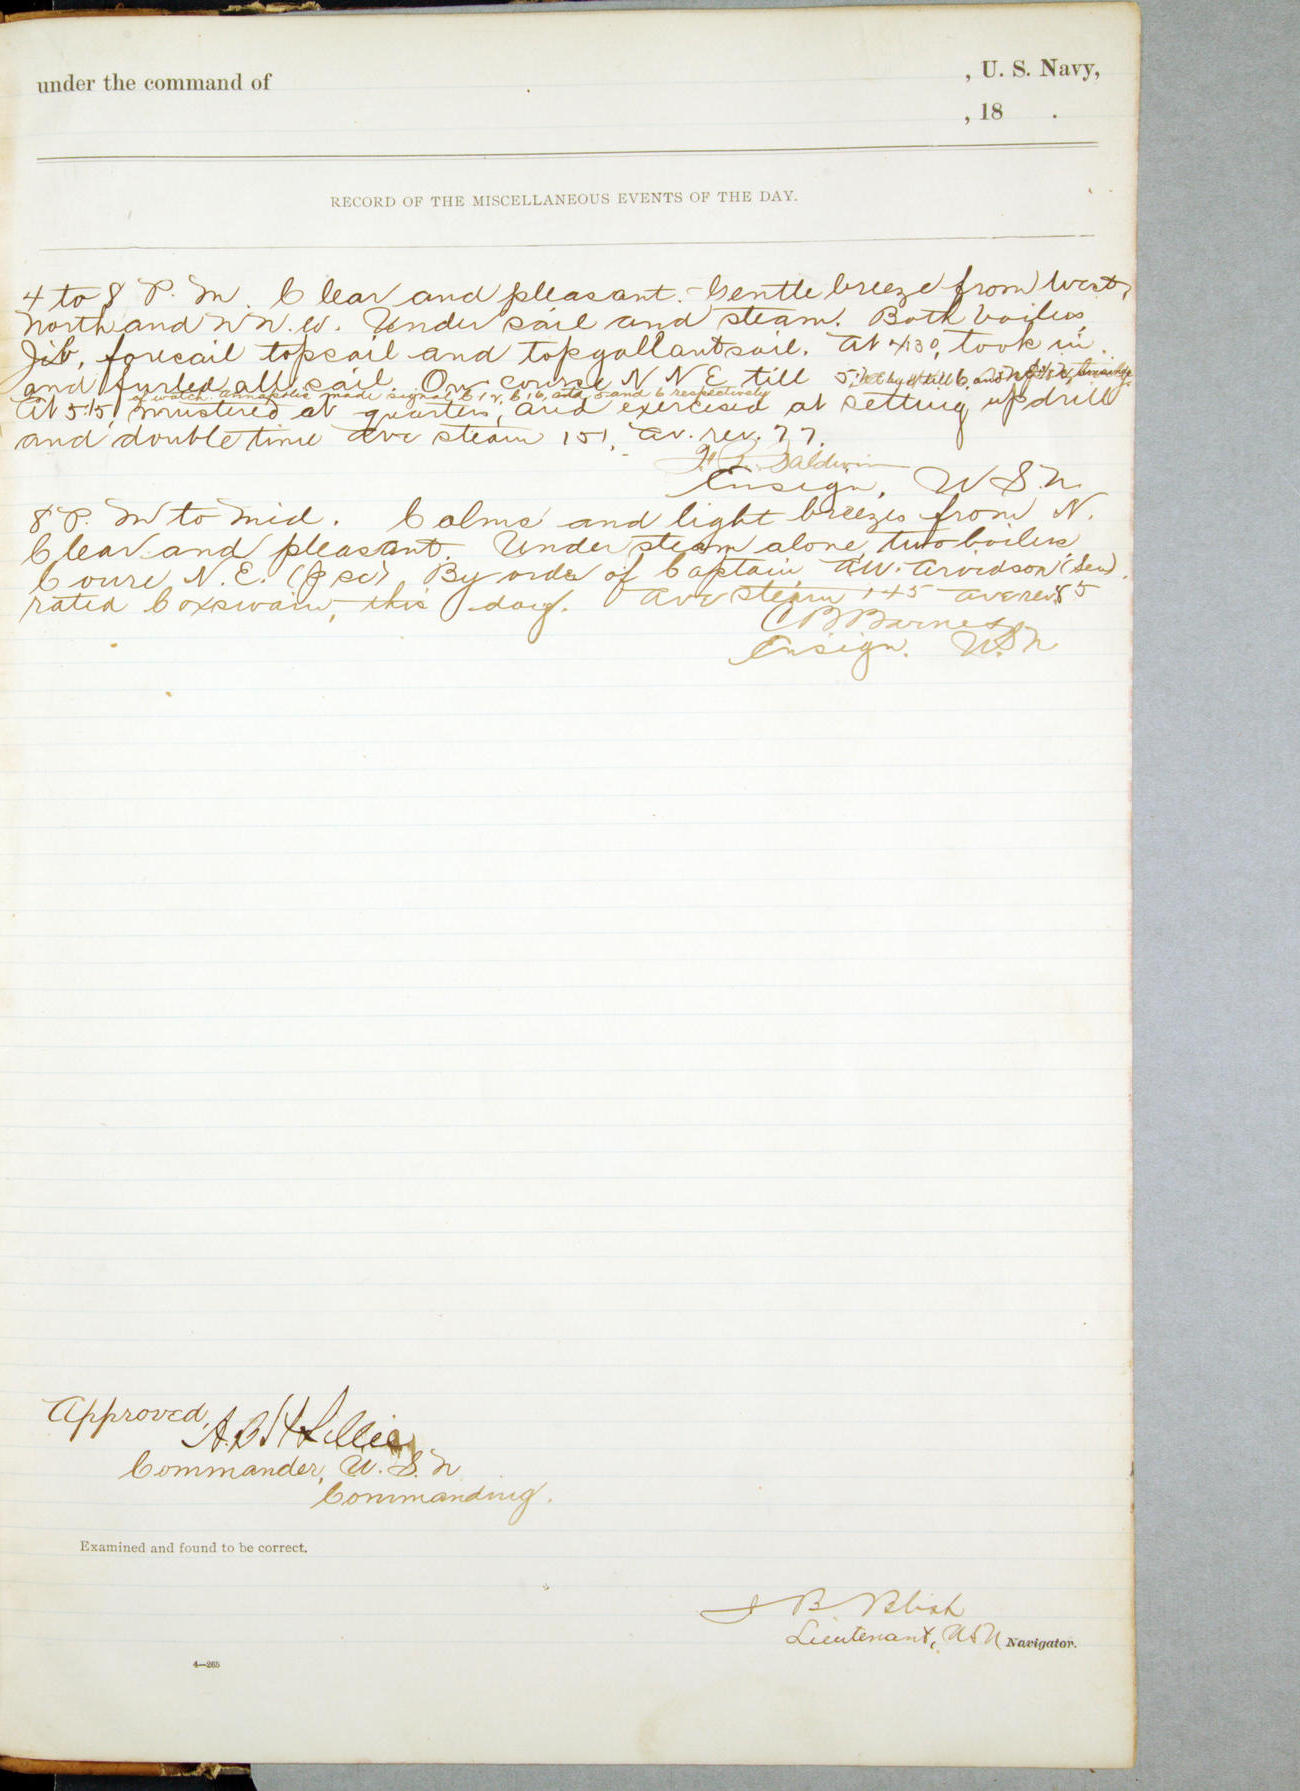 under the command of , U. S. Navy,
, 18 .
RECORD OF THE MISCELLANEOUS EVENTS OF THE DAY.
4 to 8 P. M. Clear and pleasant. Gentle breeze from West,
North and N N. W. Under sail and steam. Both boilers
Jib, foresail topsail and topgallantsail. At 4:30, took in
and furled all sail. On course N N E till 5:
of watch. Annapolis made signal 6 and 6 respectively
At 5:15, mustered at quarters, and exercised at setting up drill
and double time Ave steam 151, av. rev. 77.
Baldwin
Ensign, U S. N.
8 P. M to Mid. Calms and light breezes from N.
Clear and pleasant. Under steam alone, two boilers
Course N. E. (p sc) By order of Captain A. W. Arvidson (Sea).
rated Coxswain, this day. Ave steam 145 ave rev. 85
C B Barnes
Ensign. U. S N
Approved,
Commander, U. S. N
Commanding.
Examined and found to be correct.
J B Blish
Lieutenant, U S N Navigator.
4—265